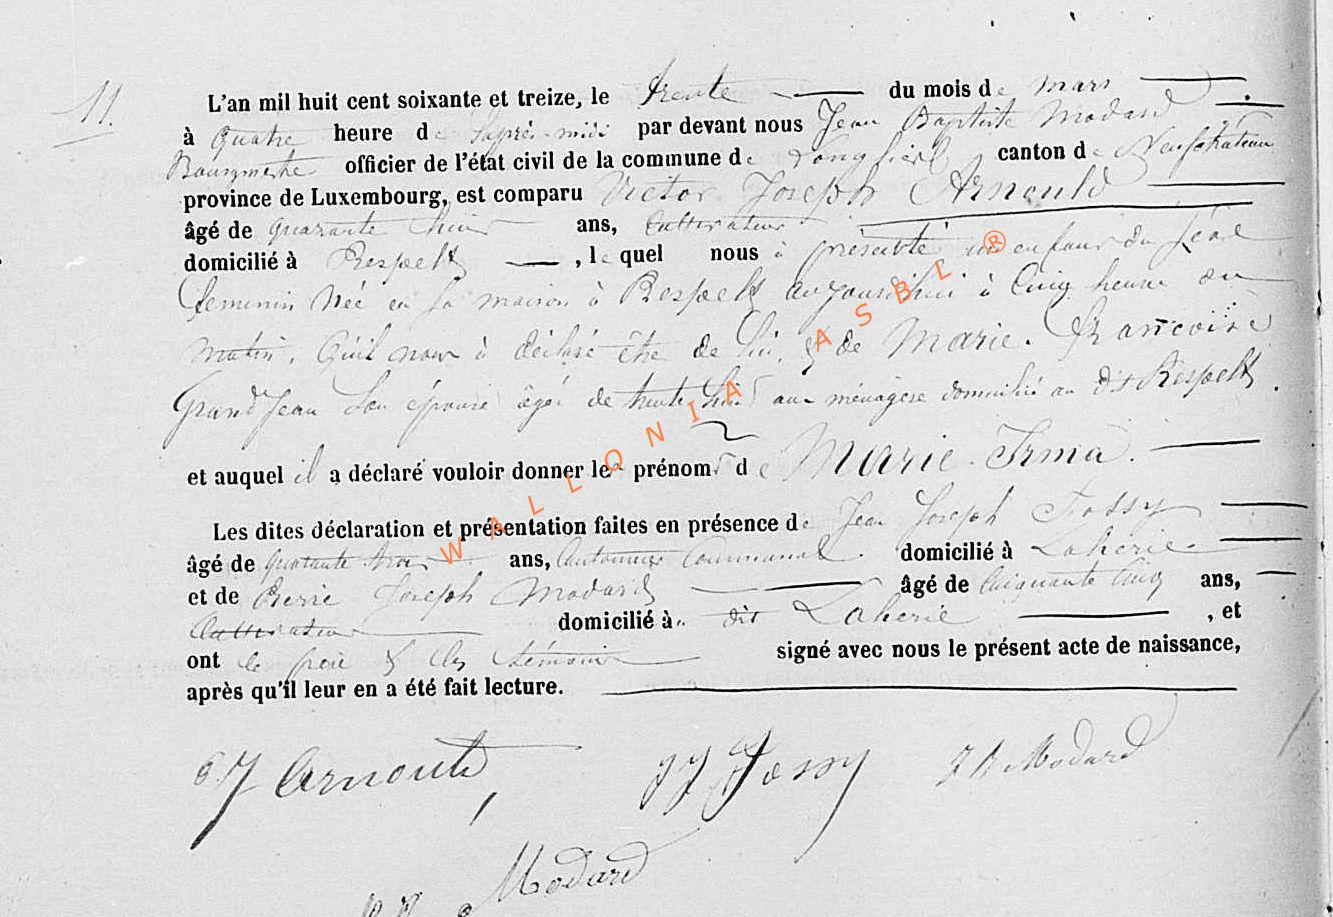 11.
L'an mil huit cent soixante et treize, le trente du mois de mars
à quatre heure de l'après-midi par devant nous Jean Baptiste Modard
Bourgmestre officier de l'état civil de la commune de Longlier canton de Neufchâteau
province de Luxembourg, est comparu Victor Joseph Arnould
âgé de quarante ans, Cultivateur
domicilié à Respelt, lequel nous à présenté un enfant du sexe
feminin Née en sa maison à Respelt aujourd'hui à Cinq heure du
matin, qu'il nous à déclaré être de lui & de Marie Françoise
Grandjean Son épouse âgée de trente ans ménagère domicilié au dit Respelt.
et auquel il a déclaré vouloir donner les prénoms de Marie Irma.
Les dites déclaration et présentation faites en présence de Jean Joseph Fossy
âgé de quarante trois ans, Cantonnier Communal domicilié à Laherie
et de Pierre Joseph Modard âgé de Cinquante Cinq ans,
Cultivateur domicilié à dit Laherie, et
ont le père & les témoins signé avec nous le présent acte de naissance,
après qu'il leur en a été fait lecture.
Arnould JJ Fossy J B Modard
Modard
WALLONIA ASBL ®